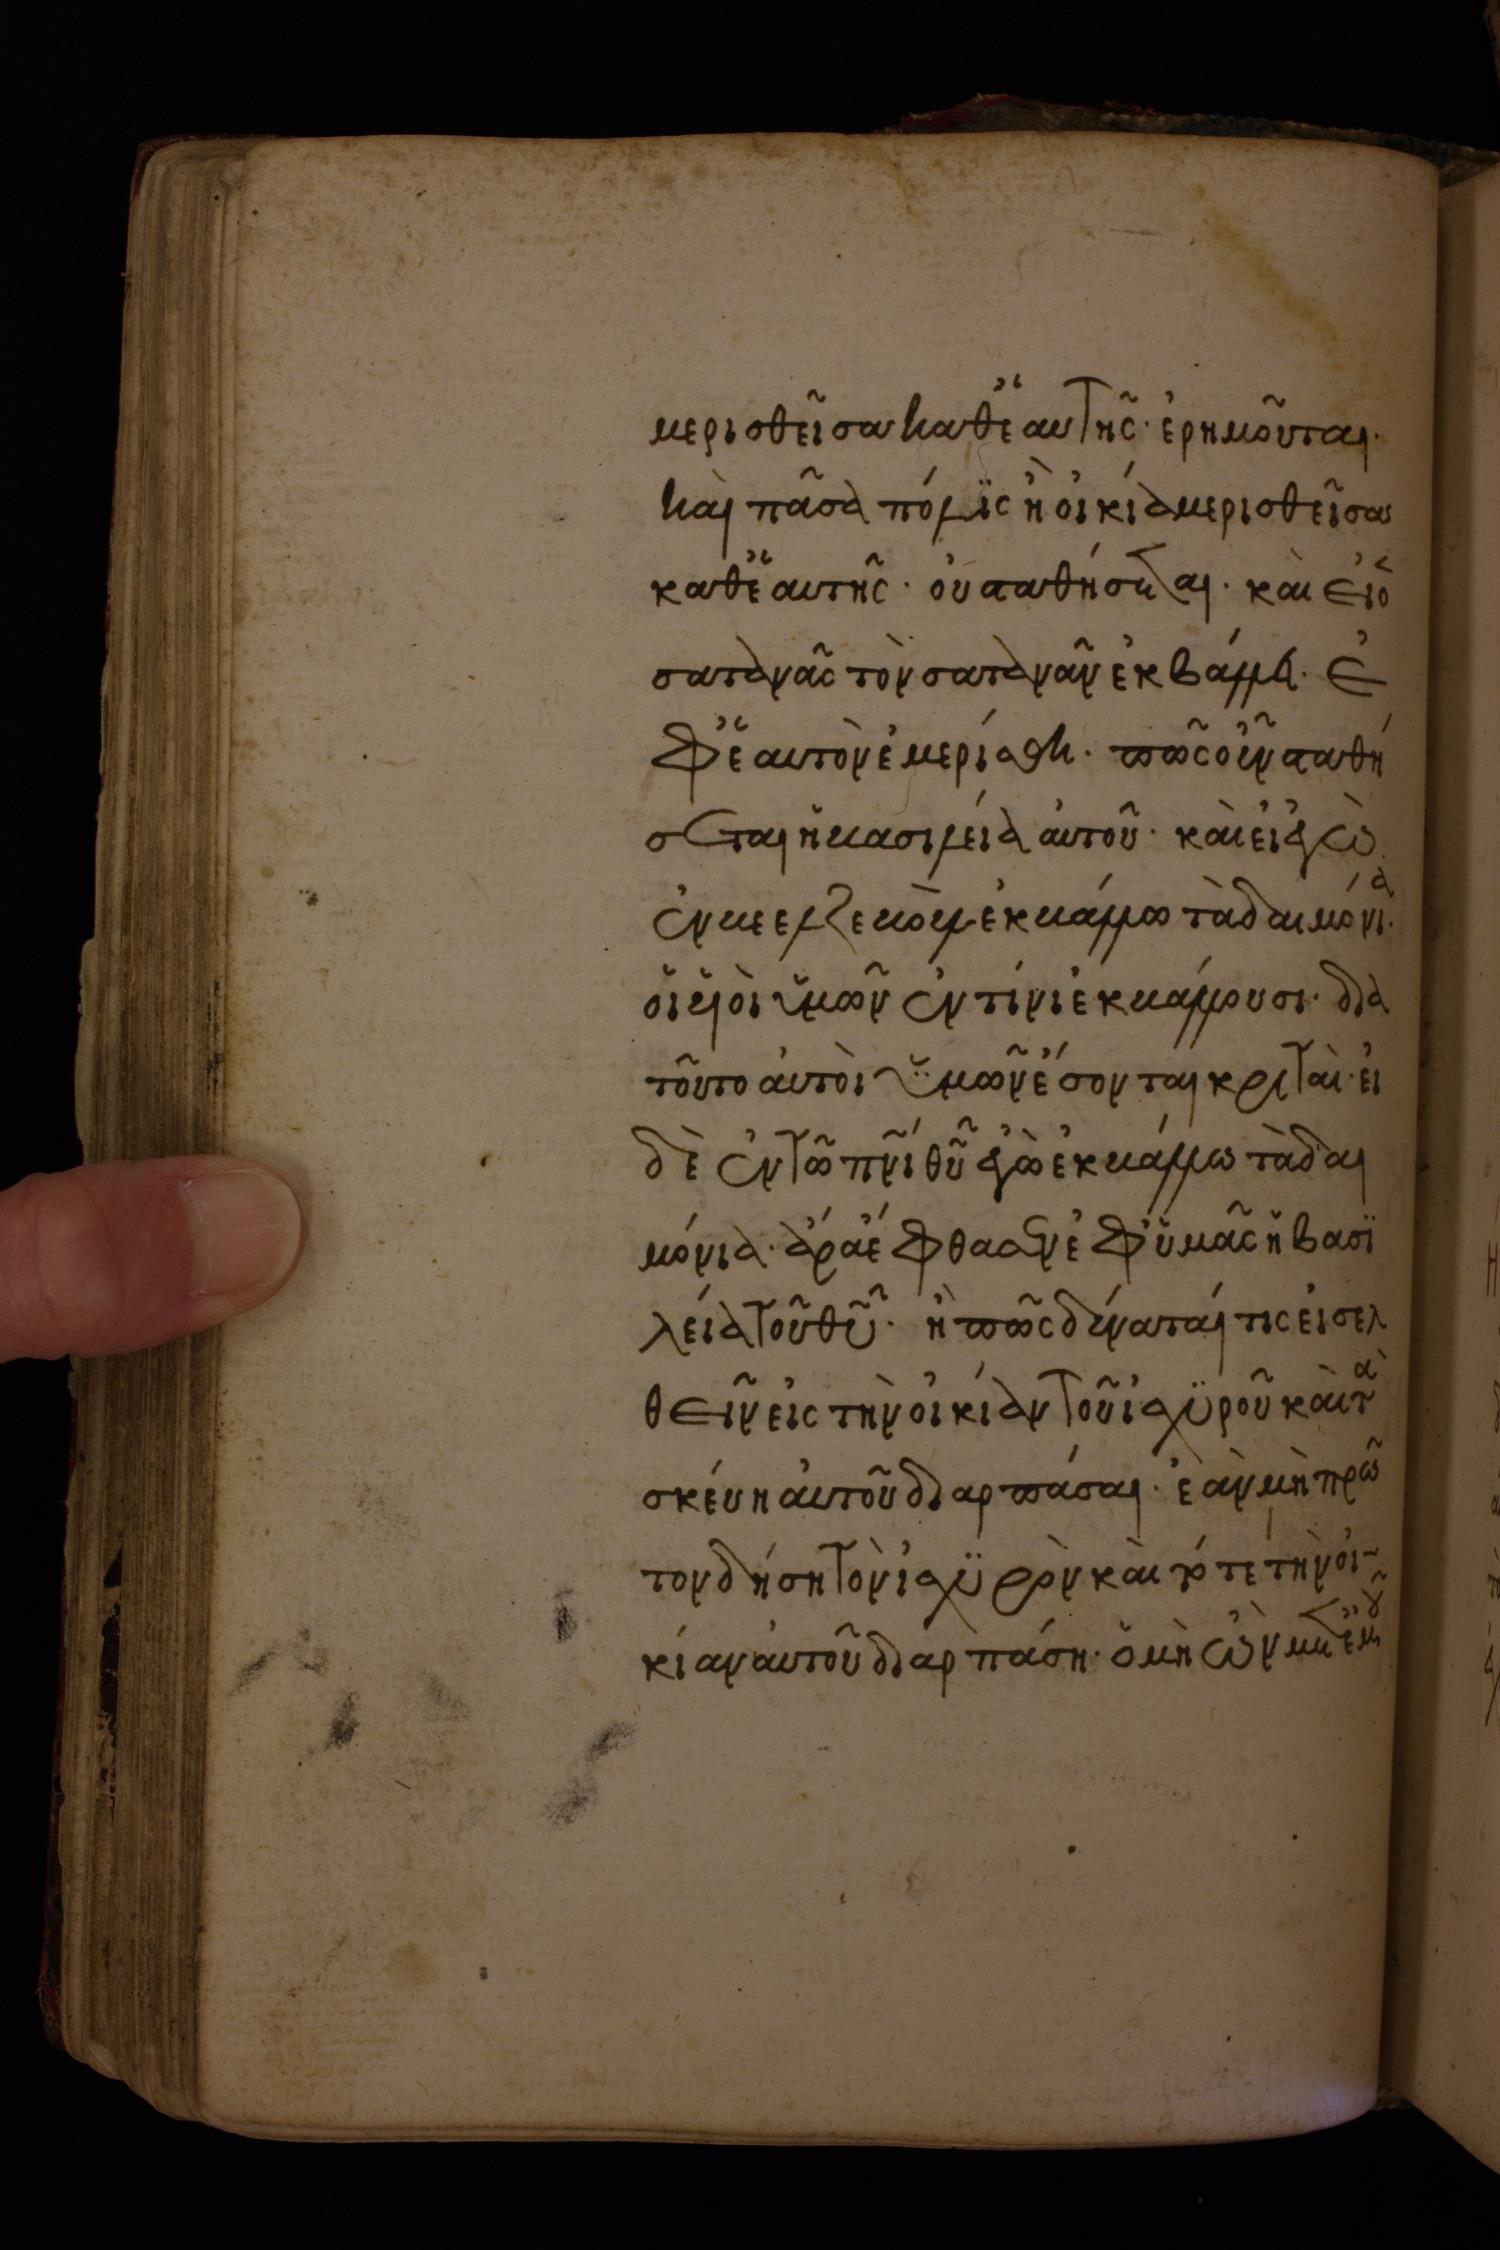 μερισθεῖσα καθ ἑαυτῆς· ἐρημοῦται·
καὶ πᾶσα πόλϊς ἢ οἰκία μερισθεῖσα
καθ ἑαυτῆς· οὐ σταθήσεται· καὶ εἰ ὁ
σατανᾶς τὸν σατανᾶν ἐκβάλλει· ἐ
φ ἑαυτὸν ἐμερίσθη· πῶς οὖν σταθή
σεται ἡ βασιλεία αὐτοῦ· καὶ εἰ ἐγὼ
ἐν βεελζεβοὺλ ἐκβάλλω τὰ δαιμόνια·
οἱ υἱοὶ ὑμῶν ἐν τίνι ἐκβάλλουσι· διὰ
τοῦτο αὐτοὶ ὑμῶν ἔσονται κριταὶ· εἰ
δὲ ἐν τῶ πνῑ θῡ ἐγὼ ἐκβάλλω τὰ δαι
μόνια· ἄρα ἔφθασεν ἐφ ὑμᾶς ἡ βασϊ
λεία τοῦ θῡ· ἢ πῶς δύναταί τις εἰσελ
θεῖν εἰς τὴν οἰκίαν τοῦ ἰσχϋροῦ καὶ τὰ
σκεύη αὐτοῦ διαρπάσαι· ἐὰν μὴ πρῶ
τον δήση τὸν ἰσχϋρὸν καὶ τότε τὴν οἰ-
κίαν αὐτοῦ διαρπάση· ὁ μὴ ὢν μετ ἐμοῦ